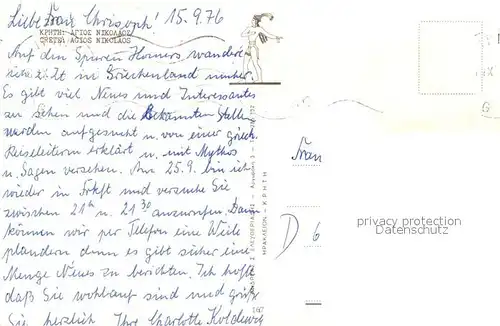 Liebe Frau Christoph! 15.9.76
ΚΡΗΤΗ: ΑΓΙΟΣ ΝΙΚΟΛΑΟΣ
CRETA: AGIOS NIKOLAOS
Auf den Spuren Homers wandere
ich zZt in Griechenland umher.
Es gibt viel Neues und Interessantes
zu sehen und die bekannten Stellen
werden aufgesucht u. von einer griech.
Reiseleiterin erklärt u. mit Mythos
u. Sagen versehen. Am 25.9. bin ich
wieder in Frkft und versuche Sie
zwischen 21°° u. 21³⁰ anzurufen. Dann
können wir per Telefon eine Weile
plaudern, denn es gibt sicher eine
Menge Neues zu berichten. Ich hoffe
daß Sie wohlauf sind und grüße
Sie herzlich Ihre Charlotte Koldewey
167
ΗΡΑΚΛΕΙΟΝ - ΚΡΗΤΗ
Frau
D 6
privacy protection
Datenschutz